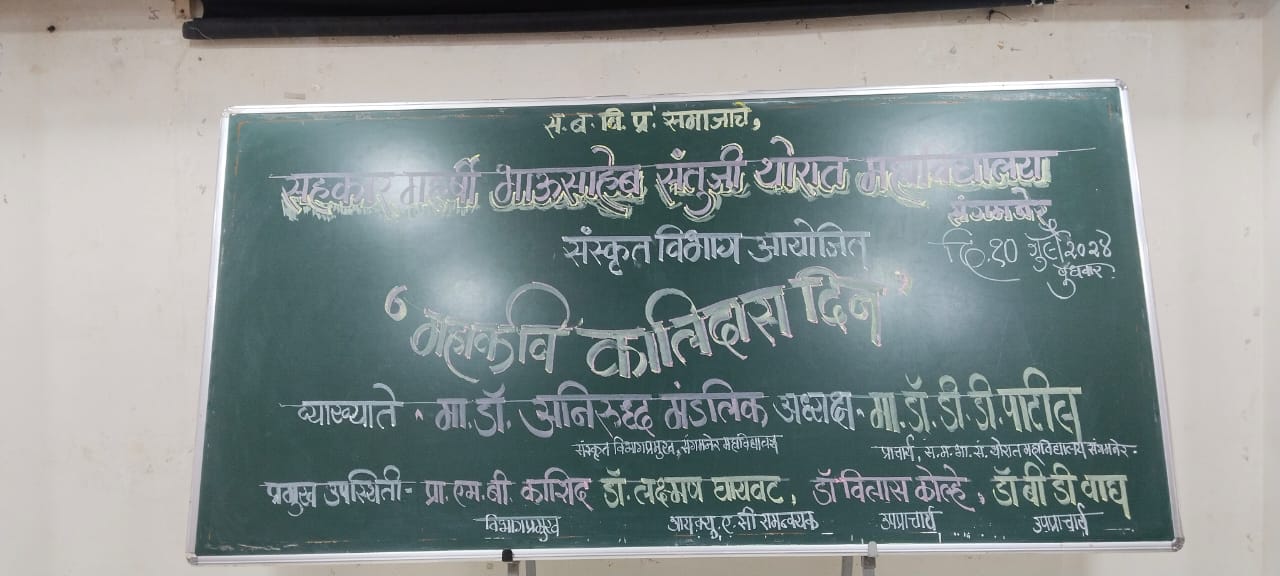 स. ब. वि. प्र. समाजाचे,
सहकार महर्षी भाऊसाहेब संतुजी थोरात महाविद्यालय
संगमनेर
संस्कृत विभाग आयोजित
दि. १० जुलै २०२४
बुधवार.
“महाकवि कालिदास दिन”
व्याख्याते - मा. डॉ. अनिरुद्ध मंडलिक अध्यक्ष - मा. डॉ. डी. डी. पाटील
संस्कृत विभागप्रमुख, संगमनेर महाविद्यालय प्राचार्य, स. म. भा. सं. थोरात महाविद्यालय संगमनेर.
प्रमुख उपस्थिती - प्रा. एम. बी. कासिद डॉ. लक्ष्मण घायवट, डॉ विलास कोल्हे, डॉ बी डी वाघ
विभागप्रमुख आय. क्यु. ए. सी समन्वयक उपप्राचार्य उपप्राचार्य